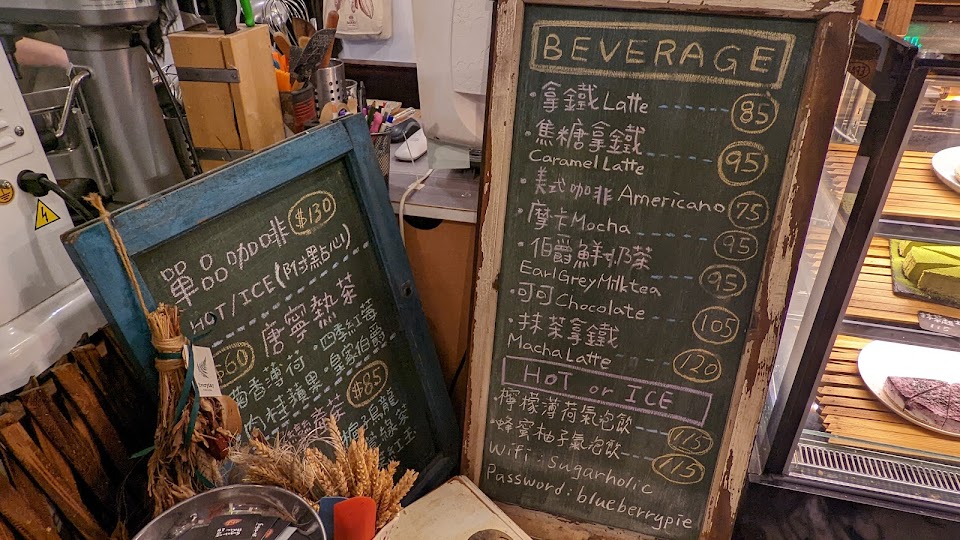 單品咖啡 $130
HOT/ICE(附點心)
唐寧熱茶
$60
薄荷.四季紅莓
皇家伯爵
$85
BEVERAGE
·拿鐵Latte 85
·焦糖拿鐵
Caramel Latte 95
·美式咖啡 Americano 75
·摩卡Mocha 95
·伯爵鮮奶茶
Earl Grey Milk tea 95
·可可Chocolate 105
·抹茶拿鐵
Macha Latte 120
HOT or ICE
檸檬薄荷氣泡飲 115
蜂蜜柚子氣泡飲 115
Wifi : sugarholic
Password : blueberrypie